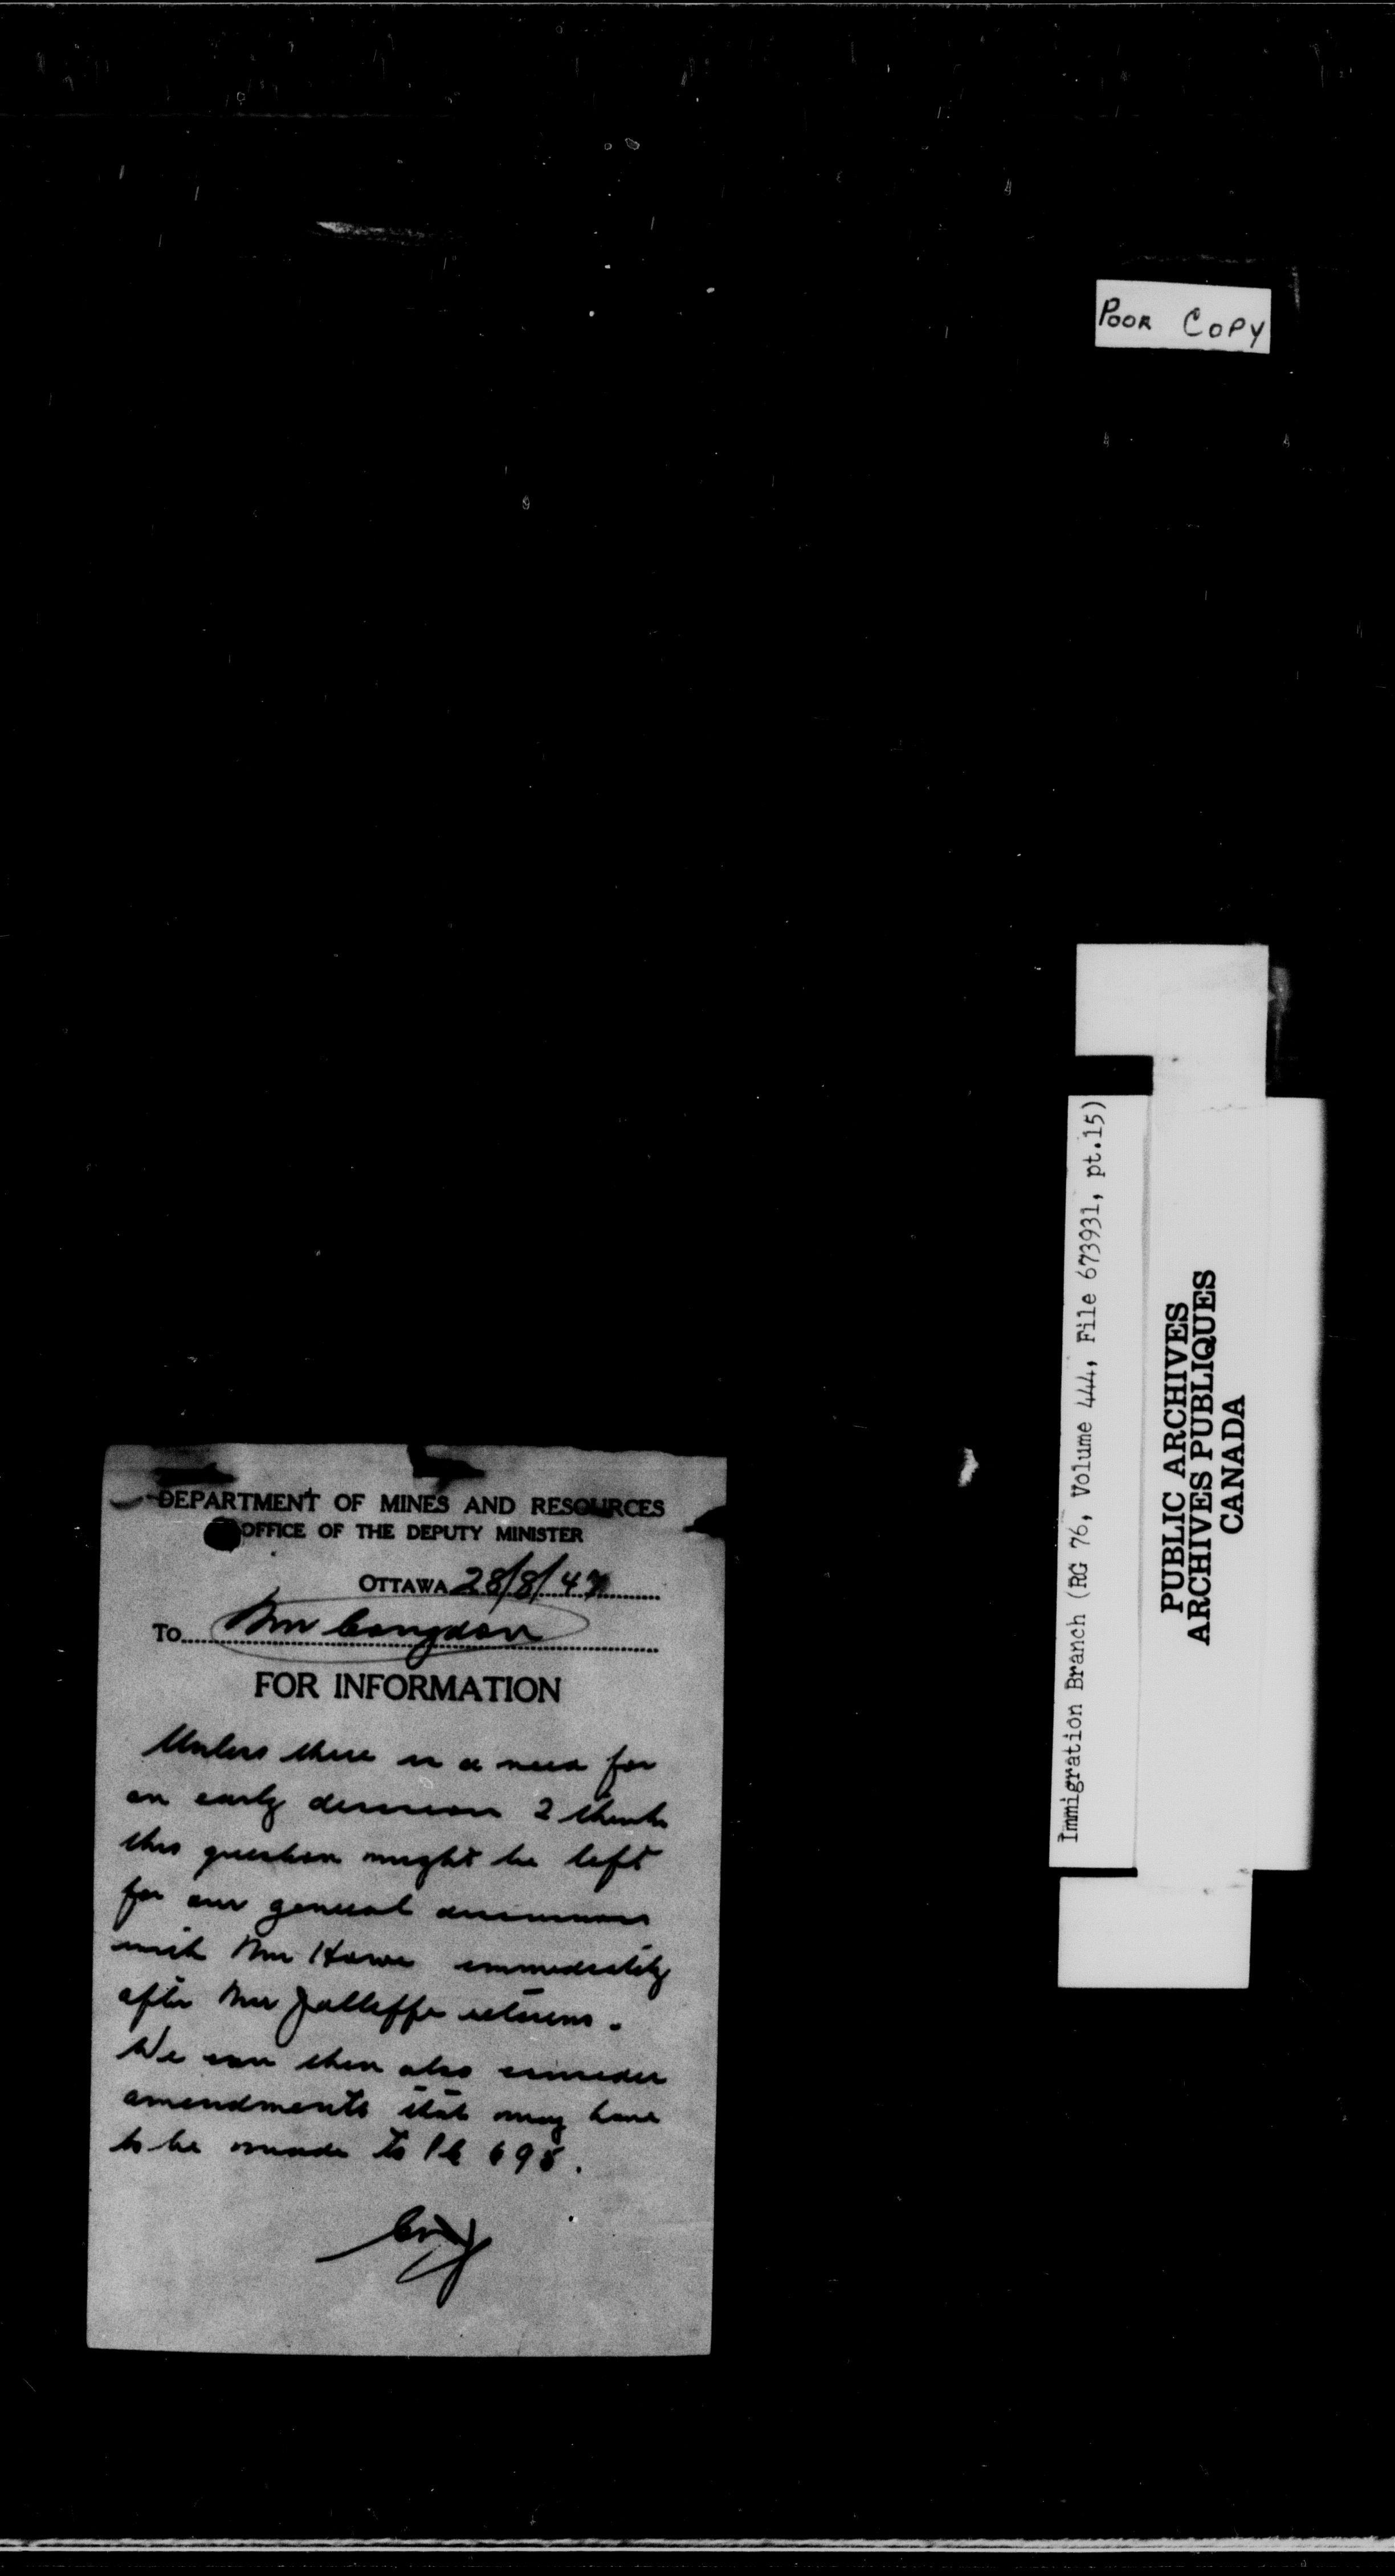 POOR COPY
DEPARTMENT OF MINES AND RESOURCES
OFFICE OF THE DEPUTY MINISTER
OTTAWA 28/8/47
To Mr Congdon
FOR INFORMATION
Unless there is a need for
an early decision I think
this question might be left
for our general discussions
with Mr Howe immediately
after Mr Jolliffe returns.
We can then also consider
amendments that may have
to be made to PC 695.
Immigration Branch (RG 76, Volume 444, File 673931, pt.15)
PUBLIC ARCHIVES
ARCHIVES PUBLIQUES
CANADA